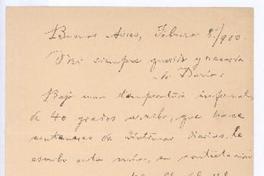 Buenos Aires, Febrero 8/900
Mi siempre querido y
Darío:
Bajo una temperatura infernal
de 40 grados escribo, que hace
centenares de víctimas diarias. Le
escribo esta mía, en contestación